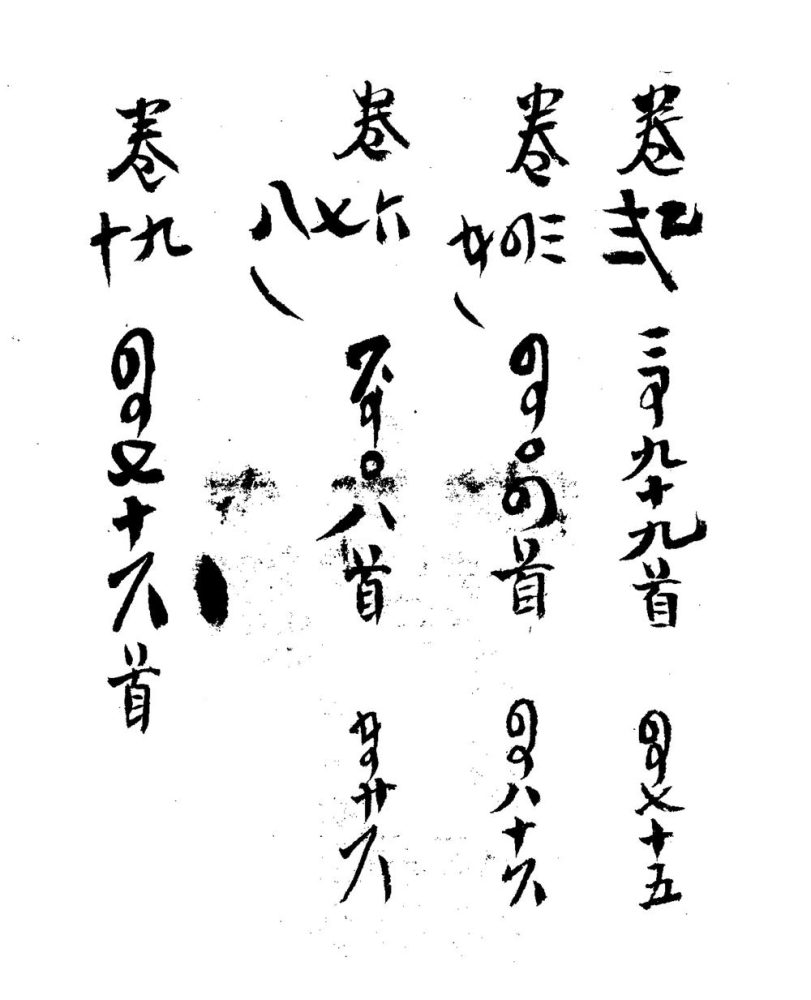 卷乙弍 三百九十九首 四百七十五
卷三四五、 四百〇四首 四百八十六
卷六七八、 六百〇八首 五百廿六
卷九十 四百七十六首